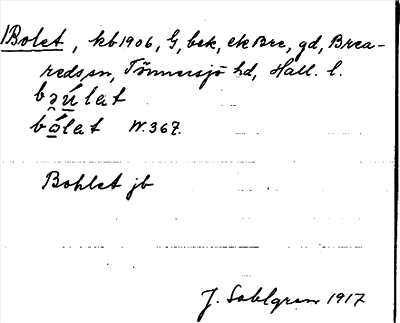 1Bolet, kb1906, G, bek, ekBre, gd, Brea-
reds sn, Tönnersjö hd, Hall. l.
bəúlat
bólat W. 367.
Bohlet jb
J. Sahlgren 1917